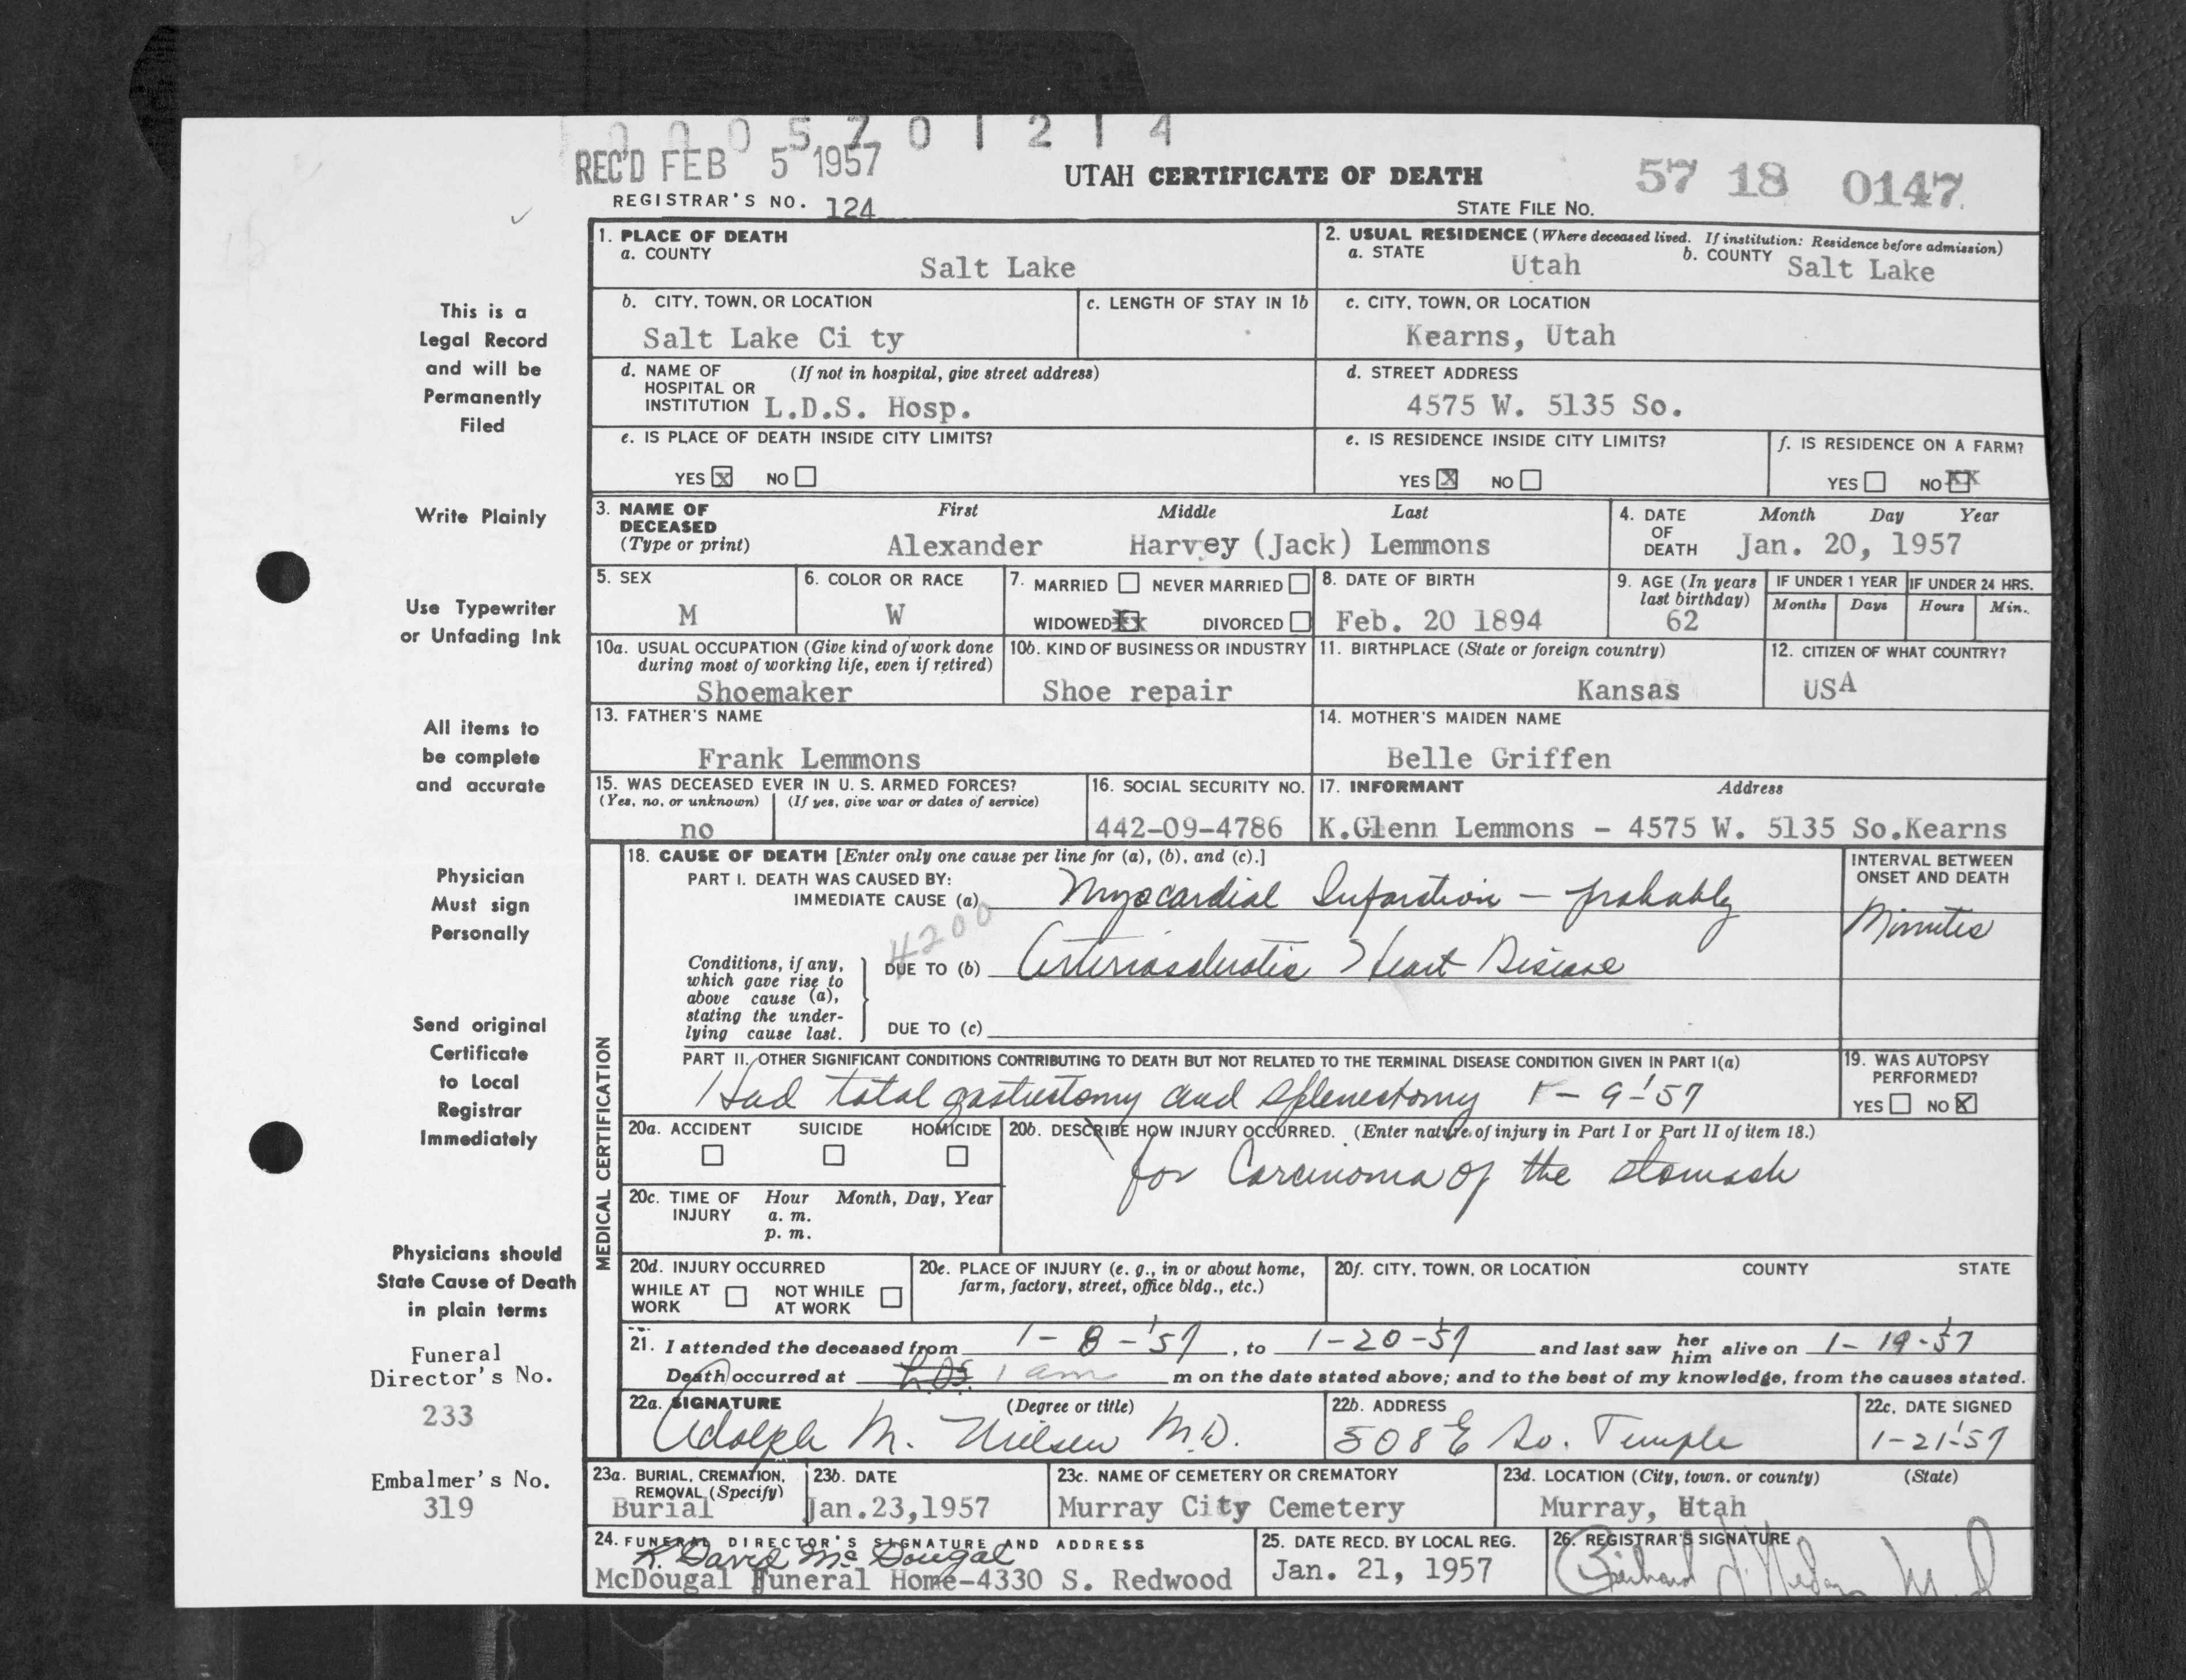 0 0 0 5 7 0 1 2 1 4
REC'D FEB 5 1957
UTAH CERTIFICATE OF DEATH
57 18 0147
REGISTRAR'S NO. 124
STATE FILE NO.
1. PLACE OF DEATH
a. COUNTY
Salt Lake
2. USUAL RESIDENCE (Where deceased lived. If institution: Residence before admission)
a. STATE Utah b. COUNTY Salt Lake
b. CITY, TOWN, OR LOCATION
Salt Lake Ci ty
c. LENGTH OF STAY IN 1b
c. CITY, TOWN, OR LOCATION
Kearns, Utah
d. NAME OF (If not in hospital, give street address)
HOSPITAL OR
INSTITUTION L.D.S. Hosp.
d. STREET ADDRESS
4575 W. 5135 So.
e. IS PLACE OF DEATH INSIDE CITY LIMITS?
YES X NO
e. IS RESIDENCE INSIDE CITY LIMITS?
YES X NO
f. IS RESIDENCE ON A FARM?
YES NO XX
3. NAME OF
DECEASED
(Type or print)
First Middle Last
Alexander Harvey (Jack) Lemmons
4. DATE
OF
DEATH
Month Day Year
Jan. 20, 1957
5. SEX
M
6. COLOR OR RACE
W
7. MARRIED NEVER MARRIED
WIDOWED XX DIVORCED
8. DATE OF BIRTH
Feb. 20 1894
9. AGE (In years
last birthday)
62
IF UNDER 1 YEAR
Months Days
IF UNDER 24 HRS.
Hours Min.
10a. USUAL OCCUPATION (Give kind of work done
during most of working life, even if retired)
Shoemaker
10b. KIND OF BUSINESS OR INDUSTRY
Shoe repair
11. BIRTHPLACE (State or foreign country)
Kansas
12. CITIZEN OF WHAT COUNTRY?
USA
13. FATHER'S NAME
Frank Lemmons
14. MOTHER'S MAIDEN NAME
Belle Griffen
15. WAS DECEASED EVER IN U. S. ARMED FORCES?
(Yes, no, or unknown) (If yes, give war or dates of service)
no
16. SOCIAL SECURITY NO.
442-09-4786
17. INFORMANT Address
K.Glenn Lemmons - 4575 W. 5135 So.Kearns
MEDICAL CERTIFICATION
18. CAUSE OF DEATH [Enter only one cause per line for (a), (b), and (c).]
PART I. DEATH WAS CAUSED BY:
IMMEDIATE CAUSE (a) Myocardial Infarction - probably
INTERVAL BETWEEN
ONSET AND DEATH
Minutes
4200
Conditions, if any,
which gave rise to
above cause (a),
stating the under-
lying cause last.
DUE TO (b) Arteriosclerotic Heart Disease
DUE TO (c)
PART II. OTHER SIGNIFICANT CONDITIONS CONTRIBUTING TO DEATH BUT NOT RELATED TO THE TERMINAL DISEASE CONDITION GIVEN IN PART I(a)
Had total gastrectomy and splenectomy 1-9-'57
19. WAS AUTOPSY
PERFORMED?
YES NO X
20a. ACCIDENT SUICIDE HOMICIDE
20b. DESCRIBE HOW INJURY OCCURRED. (Enter nature of injury in Part I or Part II of item 18.)
for Carcinoma of the stomach
20c. TIME OF Hour Month, Day, Year
INJURY a. m.
p. m.
20d. INJURY OCCURRED
WHILE AT
WORK
NOT WHILE
AT WORK
20e. PLACE OF INJURY (e. g., in or about home,
farm, factory, street, office bldg., etc.)
20f. CITY, TOWN, OR LOCATION COUNTY STATE
21. I attended the deceased from 1-8-'57, to 1-20-57 and last saw her him alive on 1-19-57
Death occurred at LDS 1 am m on the date stated above; and to the best of my knowledge, from the causes stated.
22a. SIGNATURE (Degree or title)
Adolph M. Nielsen M.D.
22b. ADDRESS
508 E So. Temple
22c. DATE SIGNED
1-21-'57
23a. BURIAL, CREMATION,
REMOVAL (Specify)
Burial
23b. DATE
Jan.23,1957
23c. NAME OF CEMETERY OR CREMATORY
Murray City Cemetery
23d. LOCATION (City, town, or county) (State)
Murray, Utah
24. FUNERAL DIRECTOR'S SIGNATURE AND ADDRESS
R. David McDougal
McDougal Funeral Home-4330 S. Redwood
25. DATE RECD. BY LOCAL REG.
Jan. 21, 1957
26. REGISTRAR'S SIGNATURE
This is a
Legal Record
and will be
Permanently
Filed
Write Plainly
Use Typewriter
or Unfading Ink
All items to
be complete
and accurate
Physician
Must sign
Personally
Send original
Certificate
to Local
Registrar
Immediately
Physicians should
State Cause of Death
in plain terms
Funeral
Director's No.
233
Embalmer's No.
319